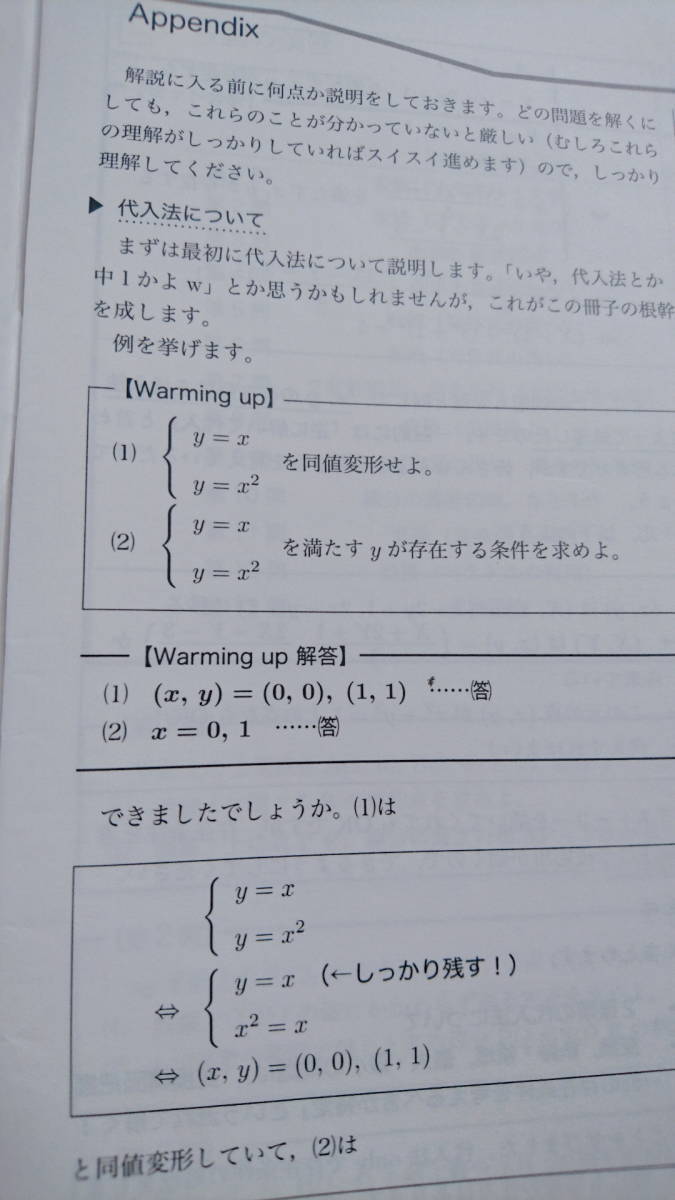 Appendix
解説に入る前に何点か説明をしておきます。どの問題を解くに
しても，これらのことが分かっていないと厳しい（むしろこれら
の理解がしっかりしていればスイスイ進めます）ので，しっかり
理解してください。
▶ 代入法について
まずは最初に代入法について説明します。「いや，代入法とか
中1かよw」とか思うかもしれませんが，これがこの冊子の根幹
を成します。
例を挙げます。
【Warming up】
(1) { y = x
y = x² を同値変形せよ。
(2) { y = x
y = x² を満たす y が存在する条件を求めよ。
【Warming up 解答】
(1) (x, y) = (0, 0), (1, 1) ……㈸
(2) x = 0, 1 ……㈸
できましたでしょうか。(1)は
{ y = x
y = x²
⇔ { y = x （←しっかり残す！）
x² = x
⇔ (x, y) = (0, 0), (1, 1)
と同値変形していて，(2)は